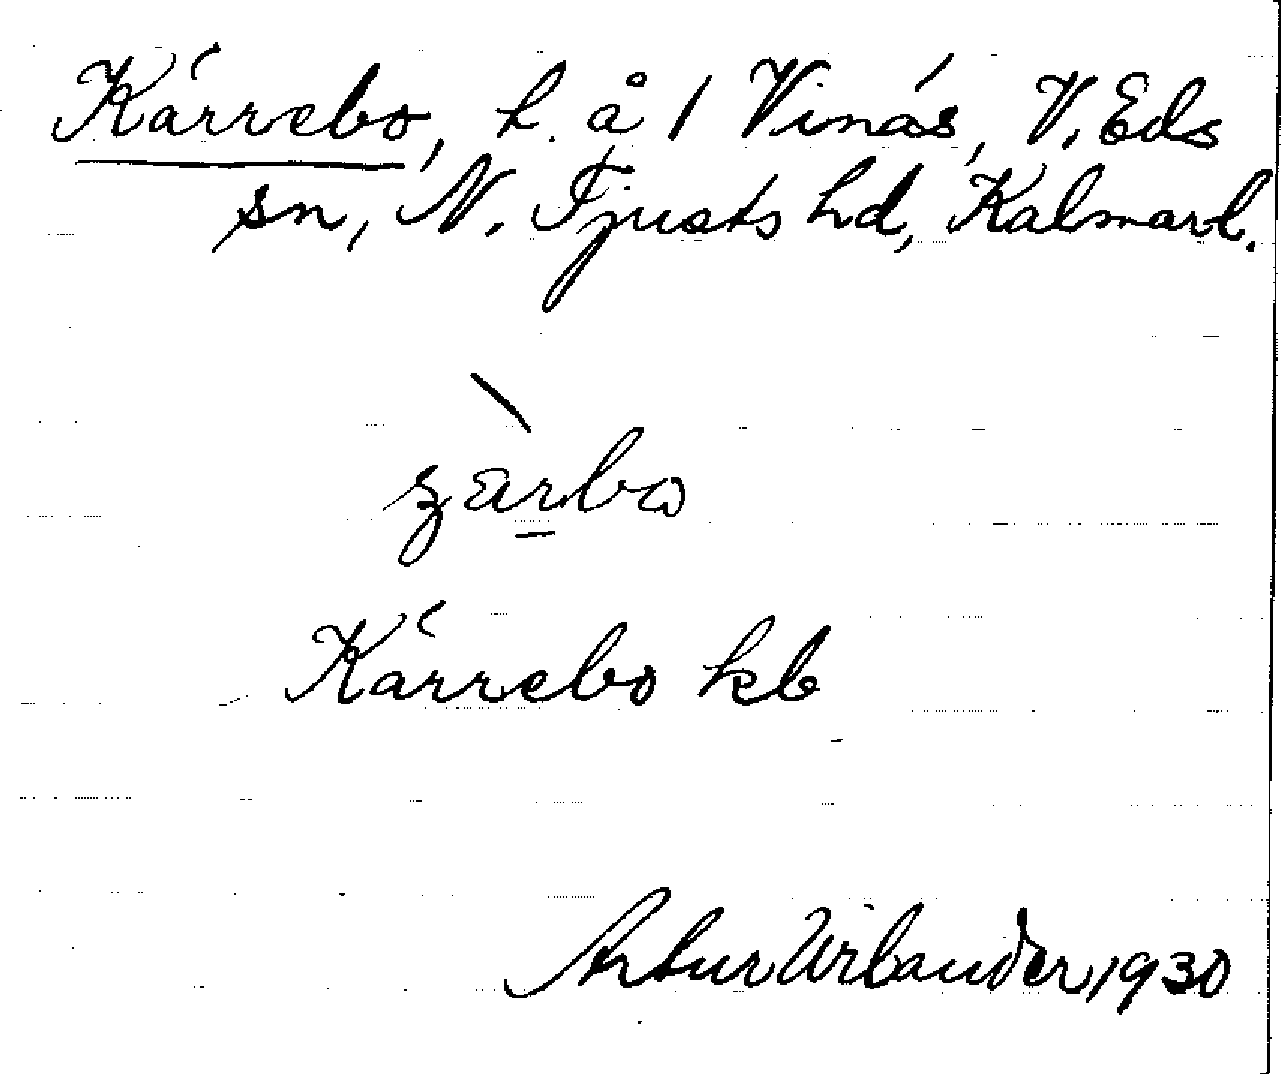 Kärrebo, h. å 1 Vinäs, V. Eds
sn, N. Tjusts hd, Kalmarl.
Kärrebo kb
Artur Wilander, 1930